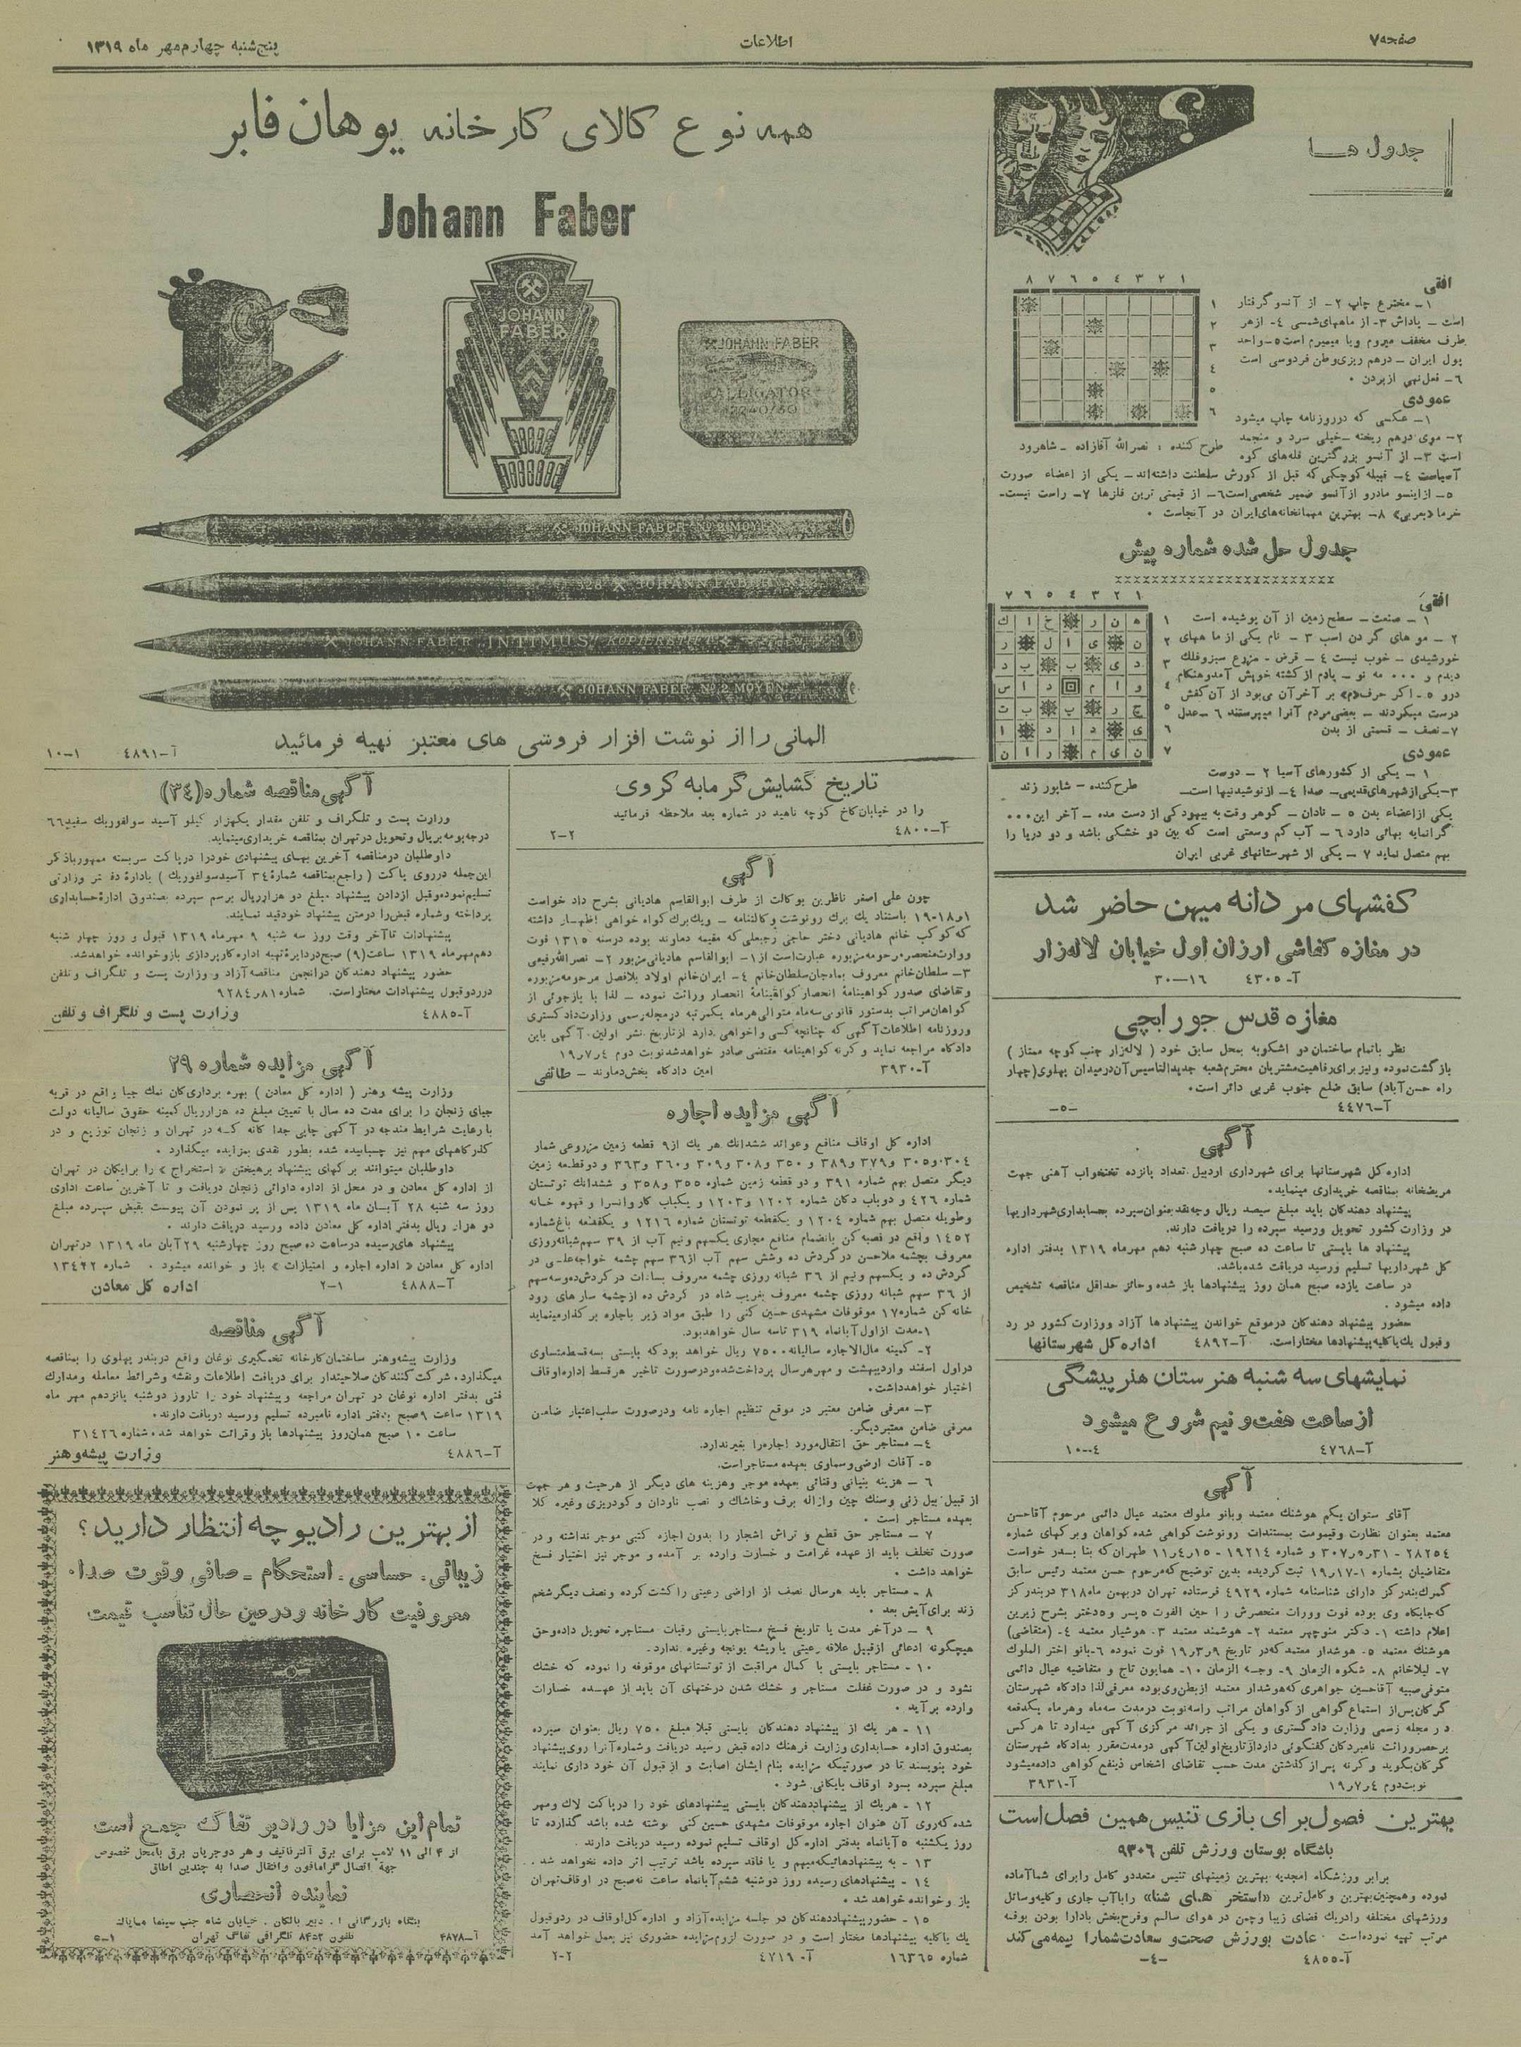 صفحه ۷
اطلاعات
پنج‌شنبه چهارم مهر ماه ۱۳۱۹
جدول هـا
افقی
۱- مخترع چاپ ۲- از آنسو گرفتار
است - پاداش ۳- از ماههای شمسی ۴- ازهر
طرف مخفف میروم و یا میمیرم است ۵- واحد
پول ایران - درهم ریزی وطن فردوسی است
۶- فعل نهی از بردن .
عمودی
۱- عکسی که در روزنامه چاپ میشود
۲- موی درهم ریخته - خیلی سرد و منجمد
است ۳- از آنسو بزرگترین قله‌های کوه
آسیاست ۴- قبیله کوچکی که قبل از کورش سلطنت داشته‌اند - یکی از اعضاء صورت
۵- ازاینسو مادرو ازآنسو ضمیر شخصی است ۶- از قیمتی ترین فلزها ۷- راست نیست-
خرما «بعربی» ۸- بهترین مهمانخانه‌های ایران در آنجاست .
۱ ۲ ۳ ۴ ۵ ۶ ۷ ۸
۱
۲
۳
۴
۵
۶
طرح کننده : نصرالله آقازاده - شاهرود
جدول حل شده شماره پیش
افقی
۱ - صنعت - سطح زمین از آن پوشیده است
۲ - مو های گردن اسب ۳ - نام یکی از ماههای
خورشیدی - خوب نیست ۴ - قرض - مزرع سبز و فلك
دیدم و ۰۰۰ مه نو - یادم از کشته خویش آمد و هنگام
درو ۵ - اگر حرف «م» بر آخر آن می‌بود از آن کفش
درست میکردند - بعضی مردم آنرا میپرستند ۶ - عدل
۷- نصف - قسمتی از بدن
عمودی
۱ - یکی از کشورهای آسیا ۲ - دوست
۳- یکی از شهرهای قدیمی - صدا ۴ - از نوشیدنیها است-
یکی از اعضاء بدن ۵ - نادان - گوهر وقت به بیهودگی از دست مده - آخر این ۰۰۰
گرانمایه بهائی دارد ۶ - آب کم وسعتی است که بین دو خشکی باشد و دو دریا را
بهم متصل نماید ۷ - یکی از شهرستانهای غربی ایران
۱ ۲ ۳ ۴ ۵ ۶ ۷
۱ ه ن ر خ ا ك
۲ ن ی ا ل ر
۳ د ی ب ب د
۴ و ا م د ا س
۵ چ ر پ ب ت
۶ ی د ا د ا
۷ ن ی م ر ا ن
طرح کننده - شاپور زند
کفشهای مردانه میهن حاضر شد
در مغازه کفاشی ارزان اول خیابان لاله‌زار
آ-۴۳۰۵ ۱۶-۳۰
مغازه قدس جورابچی
نظر باتمام ساختمان دو اشکوبه بمحل سابق خود ( لاله‌زار جنب کوچه ممتاز )
بازگشت نموده و نیز برای رفاهیت مشتریان محترم شعبه جدیدالتاسیس آن در میدان پهلوی (چهار
راه حسن‌آباد) سابق ضلع جنوب غربی دائر است.
آ-۴۴۷۶ -۵-
آگهی
اداره کل شهرستانها برای شهرداری اردبیل تعداد پانزده تختخواب آهنی جهت
مریضخانه بمناقصه خریداری مینماید.
پیشنهاد دهندگان باید مبلغ سیصد ریال وجه نقد بعنوان سپرده بحسابداری شهرداریها
در وزارت کشور تحویل ورسید سپرده را دریافت دارند.
پیشنهاد ها بایستی تا ساعت ده صبح چهار شنبه دهم مهرماه ۱۳۱۹ بدفتر اداره
کل شهرداریها تسلیم ورسید دریافت شده باشد.
در ساعت یازده صبح همان روز پیشنهادها باز شده و حائز حداقل مناقصه تشخیص
داده میشود .
حضور پیشنهاد دهندگان در موقع خواندن پیشنهاد ها آزاد و وزارت کشور در رد
و قبول یك یا کلیه پیشنهادها مختار است. آ-۴۸۹۲ اداره کل شهرستانها
نمایشهای سه شنبه هنرستان هنرپیشگی
از ساعت هفت و نیم شروع میشود
آ-۴۷۶۸ ۴-۱۰
آگهی
آقای ستوان یکم هوشنك معتمد و بانو ملوك معتمد عیال دائمی مرحوم آقاحسن
معتمد بعنوان نظارت و قیمومت بمستندات رونوشت گواهی شده گواهان و برگهای شماره
۲۸۲۵۴ - ۳۰۷٫۵٫۳۱ و شماره ۱۹۲۱۴ - ۱۱٫۴٫۱۵ طهران که بنا بدر خواست
متقاضیان بشماره ۱-۱۹٫۱۷ ثبت گردیده بدین توضیح که مرحوم حسن معتمد رئیس سابق
گمرك بندر گز دارای شناسنامه شماره ۴۹۲۹ فرستاده تهران در بهمن ماه ۳۱۸ در بندر گز
که جایگاه وی بوده فوت و وراث منحصرش را حین الفوت ۵ پسر و ۵ دختر بشرح زیرین
اعلام داشته ۱- دکتر منوچهر معتمد ۲- هوشمند معتمد ۳- هوشیار معتمد ۴- (متقاضی)
هوشنك معتمد ۵- هوشدار معتمد که در تاریخ ۱۹٫۳٫۹ فوت نموده ۶- بانو اختر الملوك
۷- لیلاخانم ۸- شکوه الزمان ۹- وجیه الزمان ۱۰- همایون تاج و متقاضیه عیال دائمی
متوفی صبیه آقاحسین جواهری که هوشدار معتمد از بطن وی بوده معرفی لذا دادگاه شهرستان
گرگان پس از استماع گواهی از گواهان مراتب را سه نوبت در مدت سه ماه و هر ماه یکدفعه
در مجله رسمی وزارت دادگستری و یکی از جرائد مرکزی آگهی میدارد تا هر کس
بر حصر وراثت نامبردگان گفتگوئی دارد از تاریخ اولین آگهی در مدت مقرر بدادگاه شهرستان
گرگان بگوید و گرنه پس از گذشتن مدت حسب تقاضای اشخاص ذینفع گواهی داده میشود
نوبت دوم ۱۹٫۷٫۴ آ-۳۹۳۱
بهترین فصول برای بازی تنیس همین فصل است
باشگاه بوستان ورزش تلفن ۹۳۰۶
برابر ورزشگاه امجدیه بهترین زمینهای تنیس متعدد و کامل را برای شما آماده
نموده و همچنین بهترین و کامل ترین «استخر های شنا» را با آب جاری و کلیه وسائل
ورزشهای مختلفه را در یك فضای زیبا و چمن در هوای سالم و فرح‌بخش بادارا بودن بوفه
مرتب تهیه نموده است . عادت بورزش صحت و سعادت شما را بیمه می‌کند
آ-۴۸۵۵ -۴-
همه نوع کالای کارخانه یوهان فابر
Johann Faber
JOHANN
FABER
JOHANN FABER
ALLIGATOR
2240/30
JOHANN FABER Nº 2 MOYEN
JOHANN FABER
JOHANN FABER „INTIMUS“ KOPIERSTIFT
JOHANN FABER Nº 2 MOYEN
المانی را از نوشت افزار فروشی های معتبر تهیه فرمائید
آ-۴۸۹۱ ۱-۱۰
تاریخ گشایش گرمابه کروی
را در خیابان کاخ کوچه ناهید در شماره بعد ملاحظه فرمائید
آ-۴۸۰۰ ۲-۲
آگهی
چون علی اصغر ناظرین بوکالت از طرف ابوالقاسم هادیانی بشرح داد خواست
۱و۱۸-۱۹ باستناد یك برك رونوشت وکالتنامه - ویك برك گواه خواهی اظهار داشته
که کوکب خانم هادیانی دختر حاجی رجبعلی که مقیمه دماوند بوده درسنه ۱۳۱۵ فوت
و وراث منحصره مرحومه مزبوره عبارت است از ۱- ابوالقاسم هادیانی مزبور ۲- نصرالله رفیعی
۳- سلطان خانم معروف بماه جان سلطان خانم ۴- ایران خانم اولاد بلافصل مرحومه مزبوره
و تقاضای صدور گواهینامه انحصار گواهینامه انحصار وراثت نموده - لذا با بازجوئی از
گواهان مراتب بدستور قانونی سه ماه متوالی هر ماه یکمرتبه در مجله رسمی وزارت دادگستری
و روزنامه اطلاعات آگهی که چنانچه کسی و اخواهی دارد از تاریخ نشر اولین آگهی باین
دادگاه مراجعه نماید و گرنه گواهینامه مقتضی صادر خواهد شد نوبت دوم ۱۹٫۷٫۴
آ-۳۹۳۰ امین دادگاه بخش دماوند - طائفی
آگهی مزایده اجاره
اداره کل اوقاف منافع و عوائد ششدانك هر یك از ۹ قطعه زمین مزروعی شمار
۳۰۴ و ۳۰۵ و ۳۷۹ و ۳۸۹ و ۳۵۰ و ۳۰۸ و ۳۰۹ و ۳۶۰ و ۳۶۳ و دو قطعه زمین
دیگر متصل بهم شماره ۳۹۱ و دو قطعه زمین شماره ۳۵۵ و ۳۵۸ و ششدانك توتستان
شماره ۴۲۶ و دوباب دکان شماره ۱۲۰۲ و ۱۲۰۳ و یکباب کاروانسرا و قهوه خانه
و طویله متصل بهم شماره ۱۲۰۴ و یکقطعه توتستان شماره ۱۲۱۶ و یکقطعه باغ شماره
۱۴۵۲ واقع در قصبه کن بانضمام منافع مجاری یکسهم و نیم آب از ۳۹ سهم شبانه‌روزی
معروف بچشمه ملاحسن در گردش ده و شش سهم آب از ۳۶ سهم چشمه خواجه علمی در
گردش ده و یکسهم و نیم از ۳۶ شبانه روزی چشمه معروف بسادات در گردش ده و سه سهم
از ۳۶ سهم شبانه روزی چشمه معروف بغریب شاه در گردش ده از چشمه سار های رود
خانه کن شماره ۱۷ موقوفات مشهدی حسین کنی را طبق مواد زیر باجاره برگذار مینماید
۱- مدت از اول آبانماه ۳۱۹ تا سه سال خواهد بود.
۲- کمینه مال الاجاره سالیانه ۷۵۰۰ ریال خواهد بود که بایستی بسه قسط متساوی
در اول اسفند و اردیبهشت و مهر هر سال پرداخت شده و در صورت تاخیر هر قسط اداره اوقاف
اختیار خواهد داشت.
۳- معرفی ضامن معتبر در موقع تنظیم اجاره نامه و در صورت سلب اعتبار ضامن
معرفی ضامن معتبر دیگر.
۴- مستاجر حق انتقال مورد اجاره را بغیر ندارد.
۵- آفات ارضی و سماوی بعهده مستاجر است.
۶ - هزینه بنیانی و قناتی بعهده موجر و هزینه های دیگر از هر حیث و هر جهت
از قبیل بیل زنی و سنك چین و ازاله برف و خاشاك و نصب ناودان و کودریزی و غیره کلا
بعهده مستاجر است .
۷ - مستاجر حق قطع و تراش اشجار را بدون اجازه کتبی موجر نداشته و در
صورت تخلف باید از عهده غرامت و خسارت وارده بر آمده و موجر نیز اختیار فسخ
خواهد داشت .
۸ - مستاجر باید هر سال نصف از اراضی رعیتی را کشت کرده و نصف دیگر شخم
زند برای آیش بعد .
۹ - در آخر مدت یا تاریخ فسخ مستاجر بایستی رقبات مستاجره تحویل داده و حق
هیچگونه ادعائی از قبیل علاقه رعیتی یا ریشه یونجه و غیره ندارد.
۱۰ - مستاجر بایستی با کمال مراقبت از توتستانهای موقوفه را نموده که خشك
نشود و در صورت غفلت مستاجر و خشك شدن درختهای آن باید از عهده خسارات
وارده بر آید .
۱۱ - هر یك از پیشنهاد دهندگان بایستی قبلا مبلغ ۷۵۰ ریال بعنوان سپرده
بصندوق اداره حسابداری وزارت فرهنك داده قبض رسید دریافت و شماره آنرا روی پیشنهاد
خود بنویسند تا در صورتیکه مزایده بنام ایشان اصابت و از قبول آن خود داری نمایند
مبلغ سپرده بسود اوقاف بایگانی شود .
۱۲ - هریك از پیشنهاددهندگان بایستی پیشنهادهای خود را در پاکت لاك و مهر
شده که روی آن عنوان اجاره موقوفات مشهدی حسین کنی نوشته شده باشد گذارده تا
روز یکشنبه ۵ آبانماه بدفتر اداره کل اوقاف تسلیم نموده رسید دریافت دارند .
۱۳ - به پیشنهادهائیکه مبهم و یا فاقد سپرده باشد ترتیب اثر داده نخواهد شد .
۱۴ - پیشنهادهای رسیده روز دوشنبه ششم آبانماه ساعت نه صبح در اوقاف تهران
باز و خوانده خواهد شد .
۱۵ - حضور پیشنهاددهندگان در جلسه مزایده آزاد و اداره کل اوقاف در رد و قبول
یك یا کلیه پیشنهادها مختار است و در صورت لزوم مزایده حضوری نیز بعمل خواهد آمد
شماره ۱۶۳۶۵ آ-۴۷۱۹ ۲-۲
آگهی مناقصه شماره (۳۴)
وزارت پست و تلگراف و تلفن مقدار یکهزار کیلو آسید سولفوریك سفید ۶۶
درجه بومه بریال و تحویل در تهران بمناقصه خریداری مینماید.
داوطلبان در مناقصه آخرین بهای پیشنهادی خود را در پاکت سربسته ممهور باذکر
این جمله در روی پاکت ( راجع بمناقصه شماره ۳۴ آسید سولفوریك ) باداره دفتر وزارتی
تسلیم نموده و قبل از دادن پیشنهاد مبلغ دو هزار ریال برسم سپرده بصندوق اداره حسابداری
پرداخته و شماره قبض را در متن پیشنهاد خود قید نمایند.
پیشنهادات تا آخر وقت روز سه شنبه ۹ مهرماه ۱۳۱۹ قبول و روز چهار شنبه
دهم مهرماه ۱۳۱۹ ساعت (۹) صبح در دایره تهیه اداره کارپردازی باز و خوانده خواهد شد.
حضور پیشنهاد دهندگان در انجمن مناقصه آزاد و وزارت پست و تلگراف و تلفن
در رد و قبول پیشنهادات مختار است. شماره ۹۲۸۴٫۸۱
آ-۴۸۸۵ وزارت پست و تلگراف و تلفن
آگهی مزایده شماره ۲۹
وزارت پیشه و هنر ( اداره کل معادن ) بهره برداری کان نمك چپا واقع در قریه
چپای زنجان را برای مدت ده سال با تعیین مبلغ ده هزار ریال کمینه حقوق سالیانه دولت
با رعایت شرایط مندرجه در آگهی چاپی جداگانه که در تهران و زنجان توزیع و در
گذرگاههای مهم نیز چسبانیده شده بطور نقدی بمزایده میگذارد .
داوطلبان میتوانند برگهای پیشنهاد برهیختن « استخراج » را برایگان در تهران
از اداره کل معادن و در محل از اداره دارائی زنجان دریافت و تا آخرین ساعت اداری
روز سه شنبه ۲۸ آبان ماه ۱۳۱۹ پس از پر نمودن آن پیوست بقبض سپرده مبلغ
دو هزار ریال بدفتر اداره کل معادن داده و رسید دریافت دارند .
پیشنهاد های رسیده در ساعت ده صبح روز چهارشنبه ۲۹ آبان ماه ۱۳۱۹ در تهران
اداره کل معادن « اداره اجاره و امتیازات » باز و خوانده میشود . شماره ۱۳۴۲۲
آ-۴۸۸۸ ۱-۲ اداره کل معادن
آگهی مناقصه
وزارت پیشه و هنر ساختمان کارخانه تخمگیری نوغان واقع در بندر پهلوی را بمناقصه
میگذارد. شرکت کنندگان صلاحیتدار برای دریافت اطلاعات و نقشه و شرائط معامله و مدارك
فنی بدفتر اداره نوغان در تهران مراجعه و پیشنهاد خود را تا روز دوشنبه پانزدهم مهر ماه
۱۳۱۹ ساعت ۹ صبح بدفتر اداره نامبرده تسلیم و رسید دریافت دارند.
ساعت ۱۰ صبح همان روز پیشنهادها باز و قرائت خواهد شد. شماره ۳۱۴۲۶
آ-۴۸۸۶ وزارت پیشه و هنر
از بهترین رادیو چه انتظار دارید ؟
زیبائی . حساسی . استحکام - صافی و قوت صدا .
معروفیت کارخانه و در عین حال تناسب قیمت
تمام این مزایا در رادیو تفاگ جمع است
از ۴ الی ۱۱ لامپ برای برق آلترناتیف و هر دو جریان برق با محل مخصوص
جهة اتصال گرامافون و انتقال صدا به چندین اطاق
نماینده انحصاری
بنگاه بازرگانی ا . دبیر بالکان . خیابان شاه جنب سینما مایاك
آ-۴۸۷۸ تلفون ۸۴۵۳ تلگرافی تفاگ تهران ۱-۵